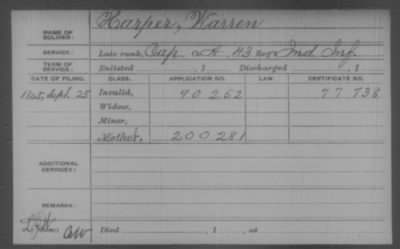 NAME OF SOLDIER: Harper, Warren
SERVICE: Late rank, Cap. Co. A. 43 Reg't Ind. Inf.
TERM OF SERVICE: Enlisted , 1 Discharged , 1
DATE OF FILING. CLASS. APPLICATION NO. LAW. CERTIFICATE NO.
1865, Sept. 25 Invalid, 90 262 77 738
Widow,
Minor,
Mother, 200281
ADDITIONAL SERVICES:
REMARKS:
Died , 1 , at